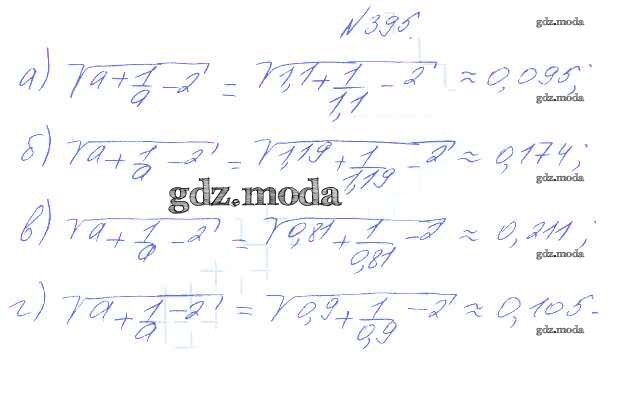 №395. gdz.moda
а) √(a + 1/a − 2) = √(1,1 + 1/1,1 − 2) ≈ 0,095;
gdz.moda
б) √(a + 1/a − 2) = √(1,19 + 1/1,19 − 2) ≈ 0,174;
gdz.moda
gdz.moda
в) √(a + 1/a − 2) = √(0,81 + 1/0,81 − 2) ≈ 0,211;
gdz.moda
г) √(a + 1/a − 2) = √(0,9 + 1/0,9 − 2) ≈ 0,105.
gdz.moda